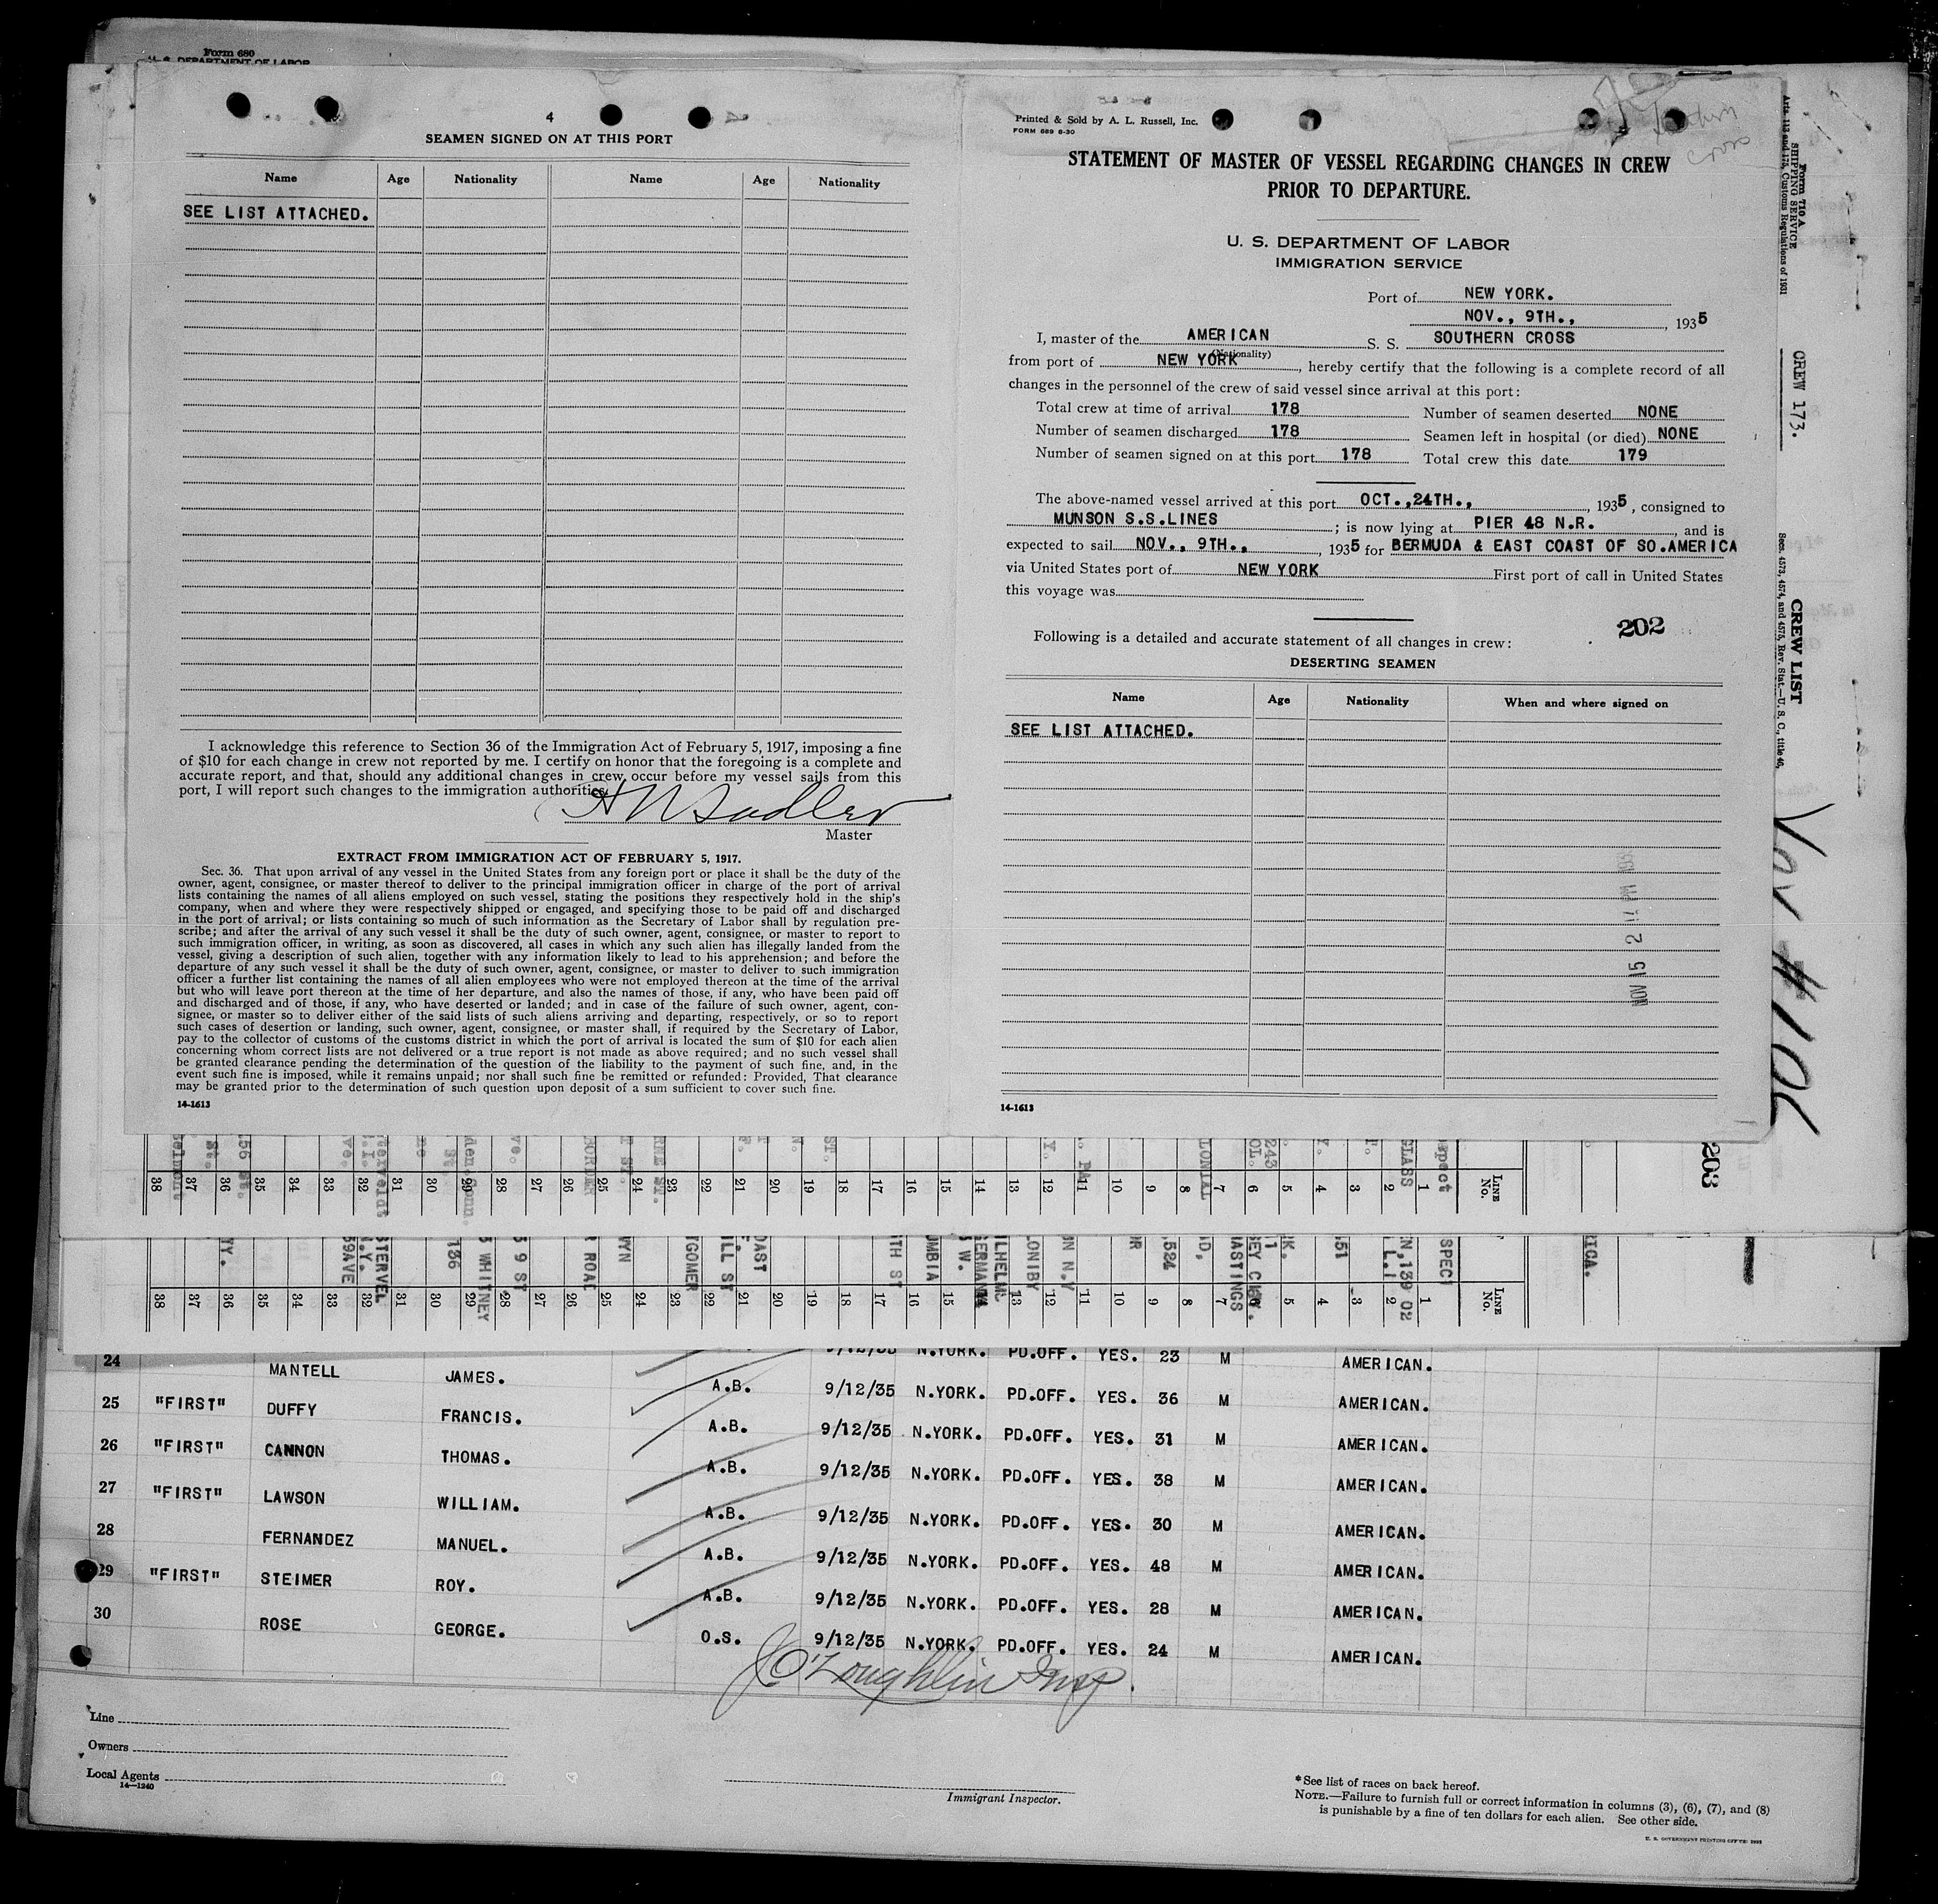 Form 680
U. S. DEPARTMENT OF LABOR
4
SEAMEN SIGNED ON AT THIS PORT
Name Age Nationality Name Age Nationality
SEE LIST ATTACHED.
I acknowledge this reference to Section 36 of the Immigration Act of February 5, 1917, imposing a fine
of $10 for each change in crew not reported by me. I certify on honor that the foregoing is a complete and
accurate report, and that, should any additional changes in crew occur before my vessel sails from this
port, I will report such changes to the immigration authorities.
Master
EXTRACT FROM IMMIGRATION ACT OF FEBRUARY 5, 1917.
Sec. 36. That upon arrival of any vessel in the United States from any foreign port or place it shall be the duty of the
owner, agent, consignee, or master thereof to deliver to the principal immigration officer in charge of the port of arrival
lists containing the names of all aliens employed on such vessel, stating the positions they respectively hold in the ship's
company, when and where they were respectively shipped or engaged, and specifying those to be paid off and discharged
in the port of arrival; or lists containing so much of such information as the Secretary of Labor shall by regulation pre-
scribe; and after the arrival of any such vessel it shall be the duty of such owner, agent, consignee, or master to report to
such immigration officer, in writing, as soon as discovered, all cases in which any such alien has illegally landed from the
vessel, giving a description of such alien, together with any information likely to lead to his apprehension; and before the
departure of any such vessel it shall be the duty of such owner, agent, consignee, or master to deliver to such immigration
officer a further list containing the names of all alien employees who were not employed thereon at the time of the arrival
but who will leave port thereon at the time of her departure, and also the names of those, if any, who have been paid off
and discharged and of those, if any, who have deserted or landed; and in case of the failure of such owner, agent, con-
signee, or master so to deliver either of the said lists of such aliens arriving and departing, respectively, or so to report
such cases of desertion or landing, such owner, agent, consignee, or master shall, if required by the Secretary of Labor,
pay to the collector of customs of the customs district in which the port of arrival is located the sum of $10 for each alien
concerning whom correct lists are not delivered or a true report is not made as above required; and no such vessel shall
be granted clearance pending the determination of the question of the liability to the payment of such fine, and, in the
event such fine is imposed, while it remains unpaid; nor shall such fine be remitted or refunded: Provided, That clearance
may be granted prior to the determination of such question upon deposit of a sum sufficient to cover such fine.
14-1613
Printed & Sold by A. L. Russell, Inc.
FORM 689 6-30
STATEMENT OF MASTER OF VESSEL REGARDING CHANGES IN CREW
PRIOR TO DEPARTURE.
U. S. DEPARTMENT OF LABOR
IMMIGRATION SERVICE
Port of NEW YORK.
NOV., 9TH., , 1935
I, master of the AMERICAN S. S. SOUTHERN CROSS
(Nationality)
from port of NEW YORK , hereby certify that the following is a complete record of all
changes in the personnel of the crew of said vessel since arrival at this port:
Total crew at time of arrival 178 Number of seamen deserted NONE
Number of seamen discharged 178 Seamen left in hospital (or died) NONE
Number of seamen signed on at this port 178 Total crew this date 179
The above-named vessel arrived at this port OCT.,24TH., , 1935, consigned to
MUNSON S.S.LINES ; is now lying at PIER 48 N.R. , and is
expected to sail NOV., 9TH., , 1935 for BERMUDA & EAST COAST OF SO.AMERICA
via United States port of NEW YORK First port of call in United States
this voyage was
202
Following is a detailed and accurate statement of all changes in crew:
DESERTING SEAMEN
Name Age Nationality When and where signed on
SEE LIST ATTACHED.
14-1613
Form 710 A
SHIPPING SERVICE
Arts. 113 and 175, Customs Regulations of 1931
CREW 173.
CREW LIST
Secs. 4573, 4574, and 4575, Rev. Stat.—U. S. C., title 46,
203
38 37 36 35 34 33 32 31 30 29 28 27 26 25 24 23 22 21 20 19 18 17 16 15 14 13 12 11 10 9 8 7 6 5 4 3 2 1 LINE No.
38 37 36 35 34 33 32 31 30 29 28 27 26 25 24 23 22 21 20 19 18 17 16 15 14 13 12 11 10 9 8 7 6 5 4 3 2 1 LINE No.
24 MANTELL JAMES. A.B. 9/12/35 N.YORK. PD.OFF. YES. 23 M AMERICAN.
25 "FIRST" DUFFY FRANCIS. A.B. 9/12/35 N.YORK. PD.OFF. YES. 36 M AMERICAN.
26 "FIRST" CANNON THOMAS. A.B. 9/12/35 N.YORK. PD.OFF. YES. 31 M AMERICAN.
27 "FIRST" LAWSON WILLIAM. A.B. 9/12/35 N.YORK. PD.OFF. YES. 38 M AMERICAN.
28 FERNANDEZ MANUEL. A.B. 9/12/35 N.YORK. PD.OFF. YES. 30 M AMERICAN.
29 "FIRST" STEIMER ROY. A.B. 9/12/35 N.YORK. PD.OFF. YES. 48 M AMERICAN.
30 ROSE GEORGE. O.S. 9/12/35 N.YORK. PD.OFF. YES. 28 M AMERICAN.
9/12/35 N.YORK. PD.OFF. YES. 24 M AMERICAN.
J O'Loughlin Insp.
Line
Owners
Local Agents
14—1240
Immigrant Inspector.
*See list of races on back hereof.
NOTE.—Failure to furnish full or correct information in columns (3), (6), (7), and (8)
is punishable by a fine of ten dollars for each alien. See other side.
U. S. GOVERNMENT PRINTING OFFICE